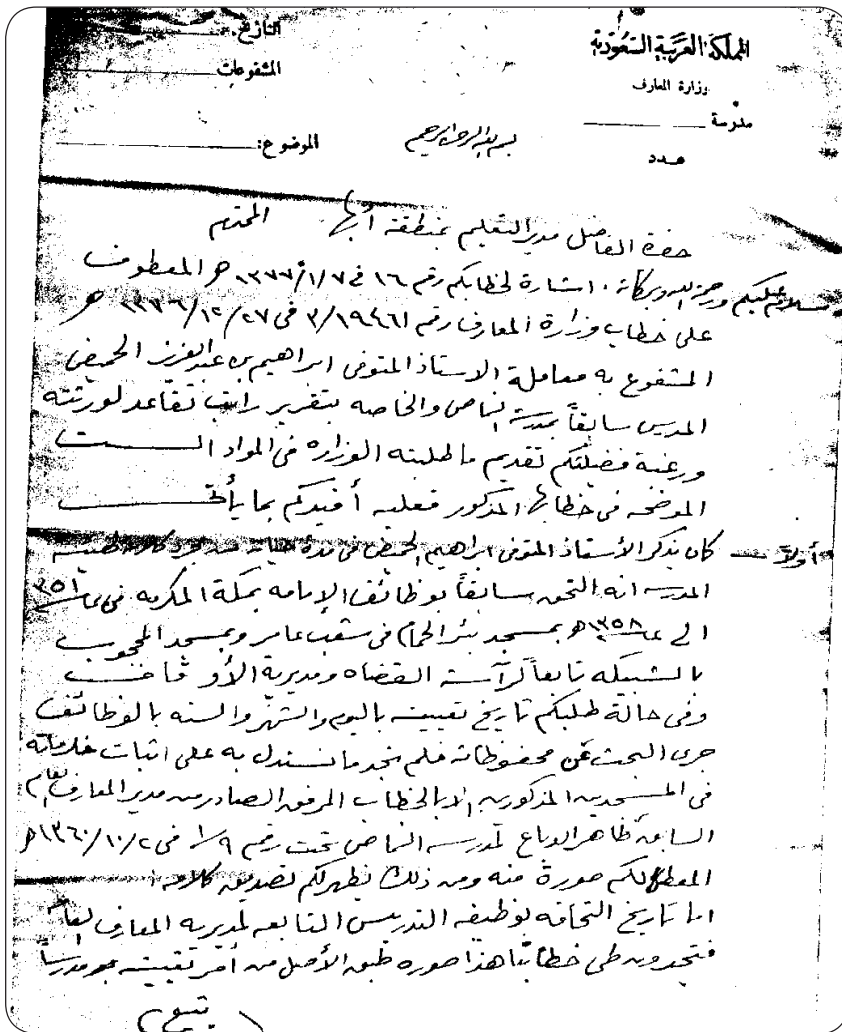 المملكة العربية السعودية
وزارة المعارف
مدرسة
عدد
التاريخ:
المشفوعات
الموضوع:
بسم الله الرحمن الرحيم
حضرة الفاضل مدير التعليم بمنطقة أبها المحترم
سلام عليكم ورحمة الله وبركاته . اشارة لخطابكم رقم ١٦ في ١٣٧٧/١/٧ هـ المعطوف
على خطاب وزارة المعارف رقم ٣/١٩٤٤٦١ في ١٣٧٦/١٢/٢٧ هـ
المشفوع به معاملة الاستاذ المتوفى ابراهيم بن عبدالعزيز الحميضي
المدرس سابقاً بمدرسة النماص والخاصه بتقرير راتب تقاعد لورثته
ورغبة فضيلتكم تقديم ما طلبته الوزاره في المواد الست
الموضحه في خطابها المذكور فعليه أفيدكم بما يأتي
أولاً – كان يذكر الأستاذ المتوفى ابراهيم الحميضي في مدة حياته
المدرسه انه التحق سابقاً بوظائف الإمامه بمكة المكرمه في عام ١٣٥١
الى عام ١٣٥٨ هـ بمسجد بئر الحمام في شعب عامر وبمسجد المحجوب
بالشبيكه تابعاً لرآسة القضاه ومديرية الأوقاف
وفي حالة طلبكم تاريخ تعيينه باليوم والشهر والسنه بالوظائف
جرى البحث عن محفوظاته فلم نجد ما نستدل به على اثبات خدماته
في المسجدين المذكورين الا بالخطاب المرفق الصادر من مدير المعارف العام
السابق طاهر الدباغ لمدرسه النماص تحت رقم ١/٩ في ١٣٦٠/١٠/٢ هـ
المعطا لكم صورة منه ومن ذلك يظهر لكم تصديق كلامه
اما تاريخ التحاقه بوظيفه التدريس التابعه لمديريه المعارف العامه
فتجدون طي خطابنا هذا صوره طبق الأصل من أمر تعيينه مدرساً
( يتبع )